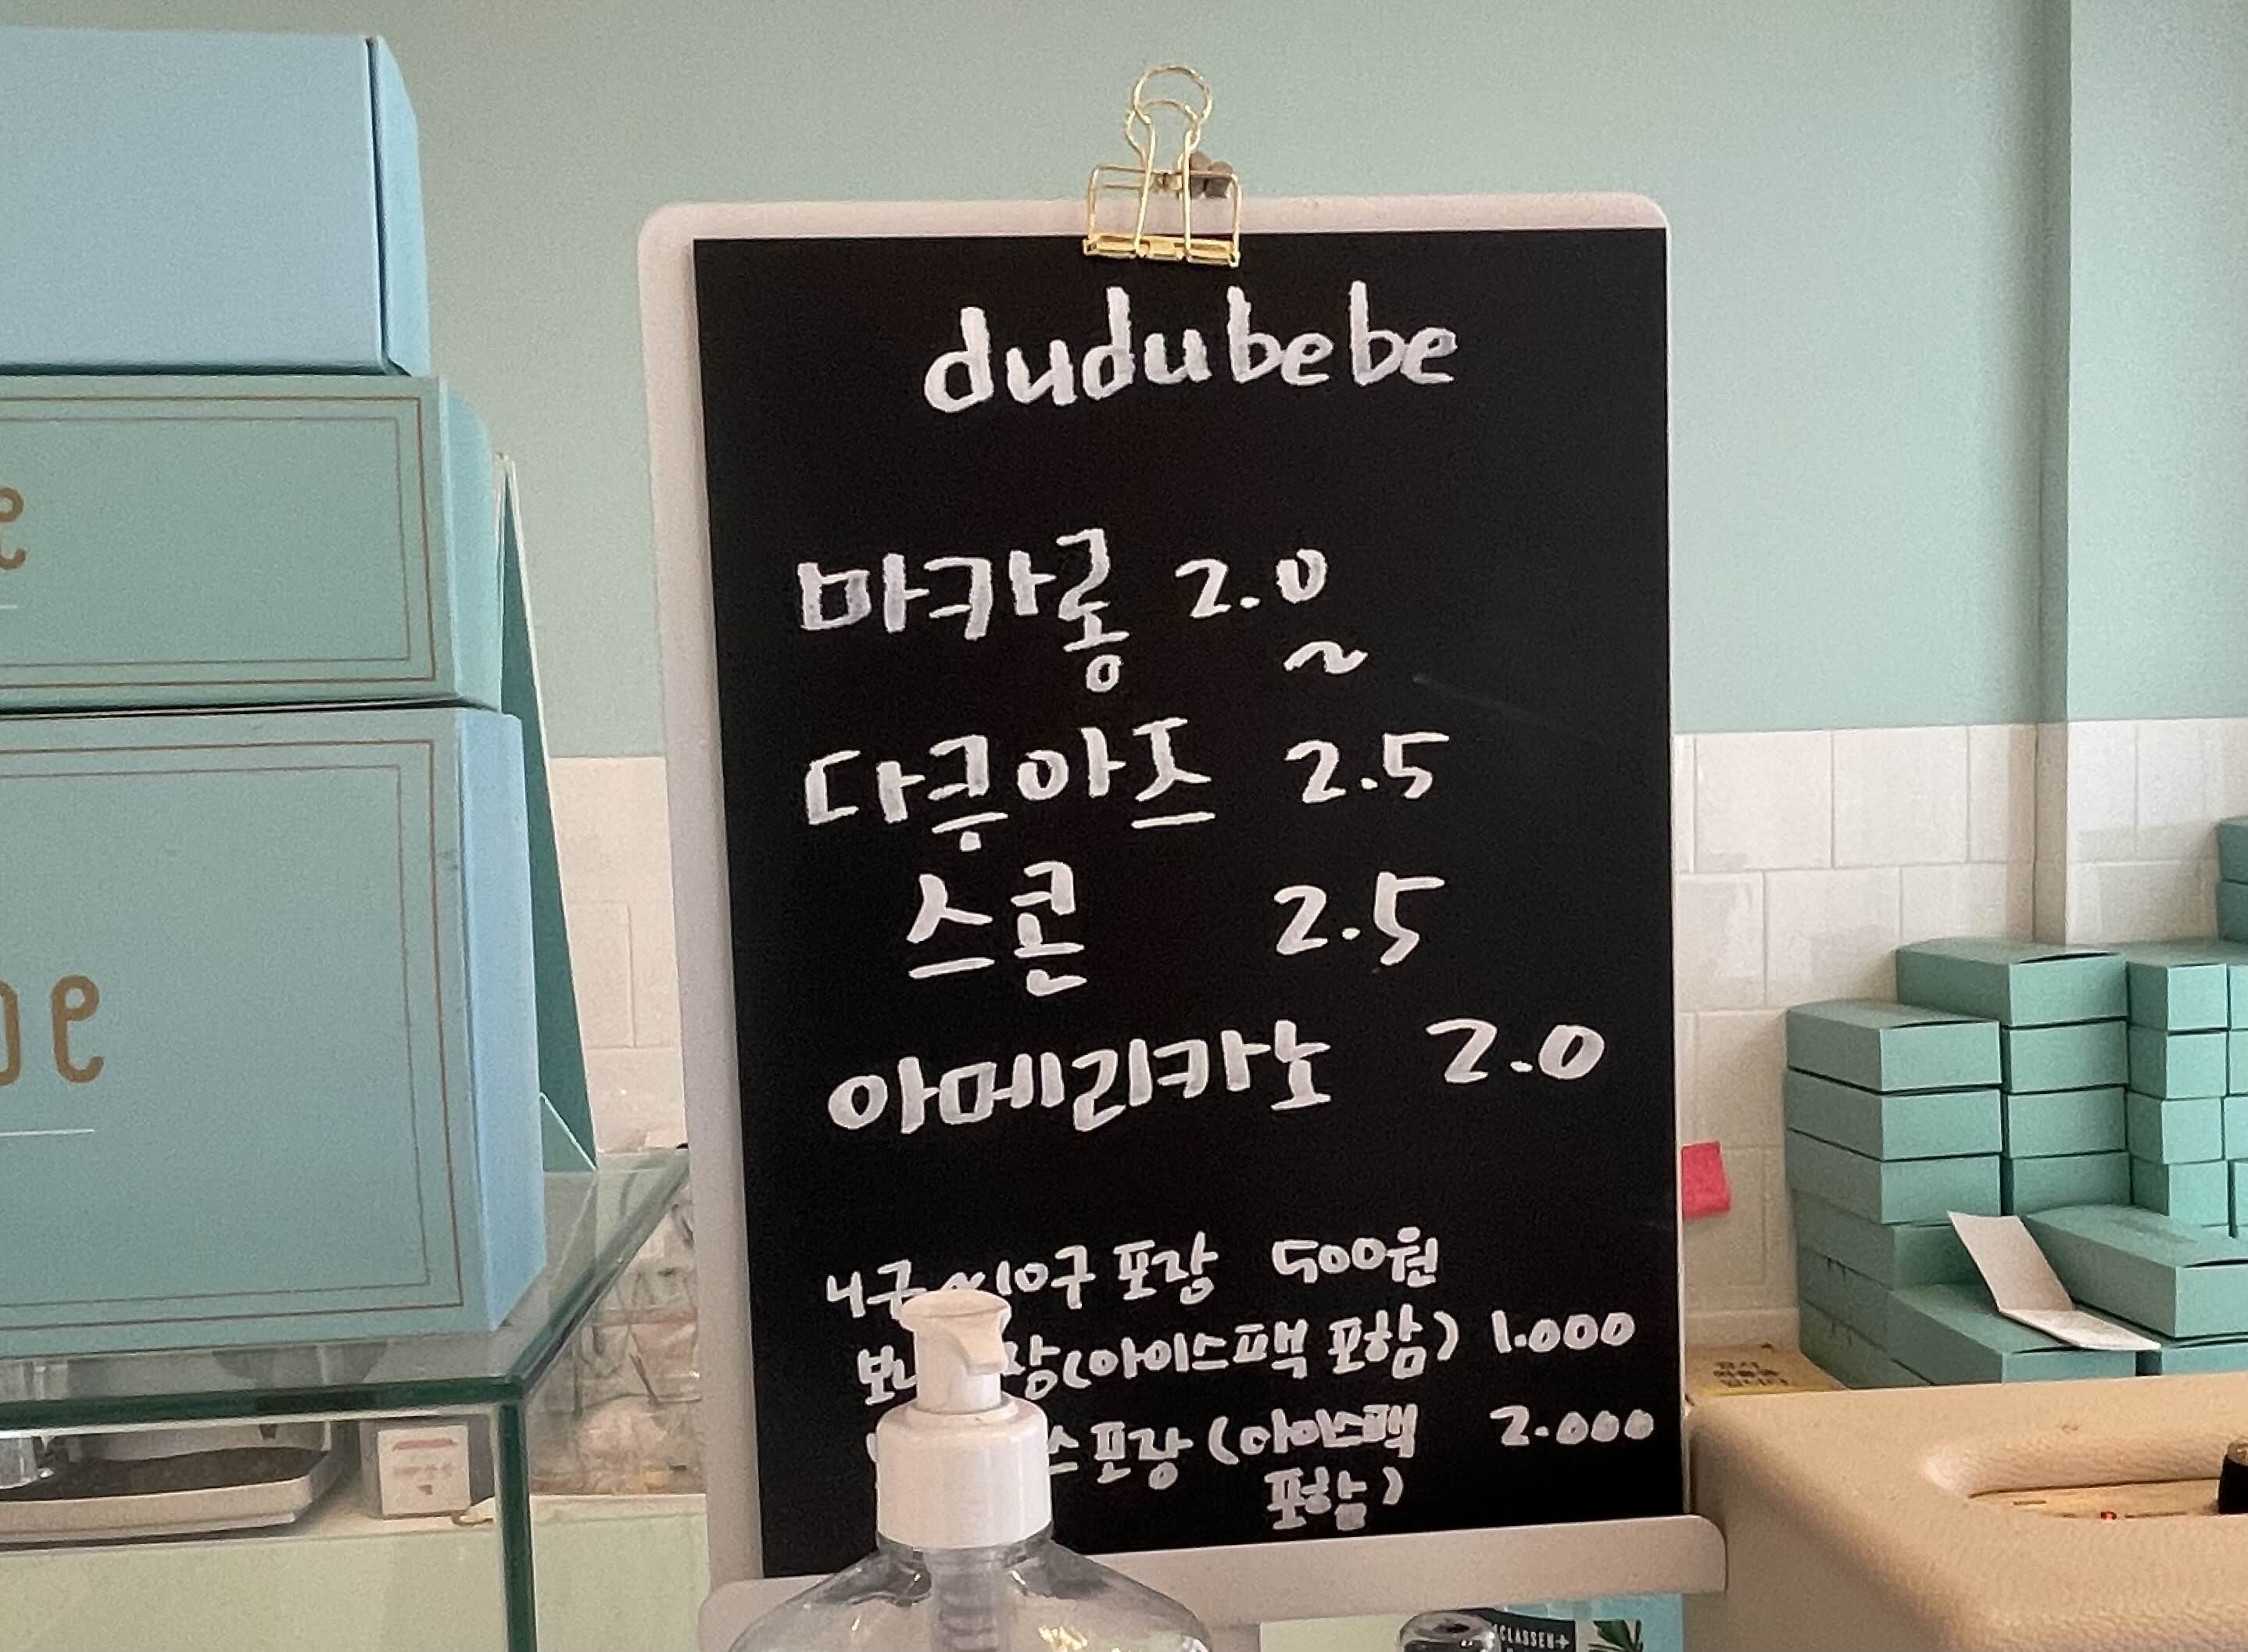 dudubebe
마카롱 2.0
~
다쿠아즈 2.5
스콘 2.5
아메리카노 2.0
4구 10구 포장 500원
(아이스팩 포함) 1.000
포장 (아이스팩 2.000
포함)